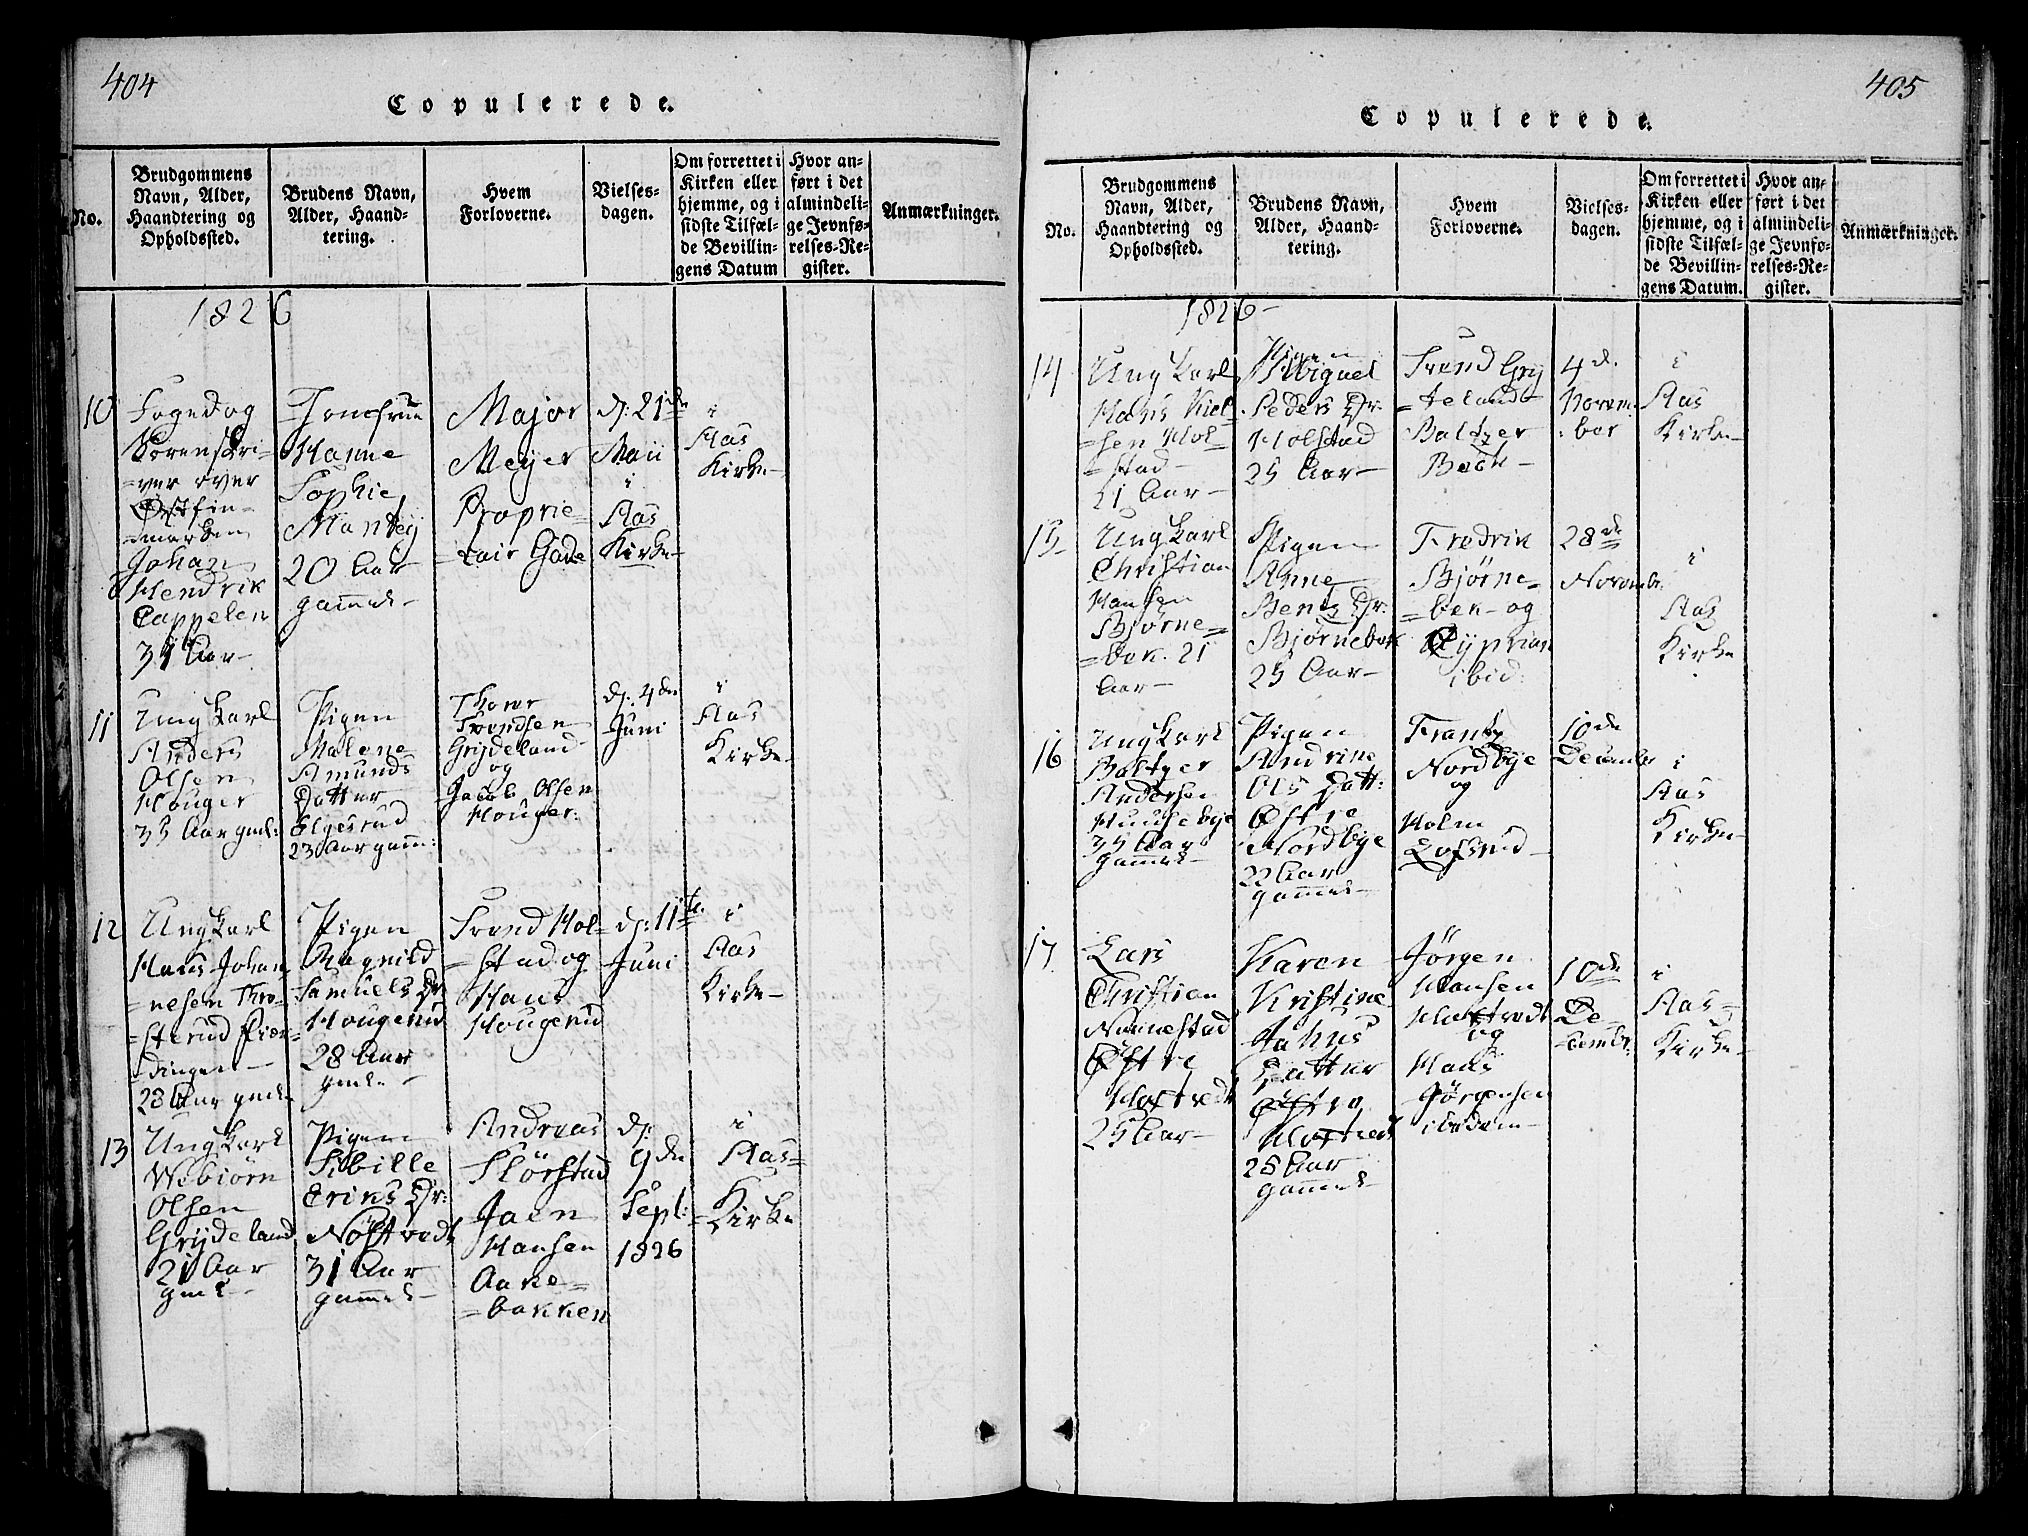 404
Copulerede.
No.
Brudgommens
Navn, Alder,
Haandtering og
Opholdssted.
Brudens Navn,
Alder, Haand-
tering.
Hvem
Forloverne.
Vielses-
dagen.
Om forrettet i
Kirken eller
hjemme, og i
sidste Tilfæl-
de Bevillin-
gens Datum
Hvor an-
ført i det
almindeli-
ge Jevnfø-
relses-Re-
gister.
Anmærkninger.
1826
10
Foged og
Sorenskri-
=ver over
Østfin-
=marken
Johan
Hendrik
Cappelen
31 Aar-
Jomfrue
Hanne
Sophie
Mantey
20 Aar
gammel-
Major
Meyer
Proprie-
=tair Gade
d: 21de
Maii
i
Aas
Kirke-
i
Aas
Kirke-
11
Ungkarl
Anders
Olsen
Houger
33 Aar gml:
Pigen
Malene
Amunds
Datter
Elgesrud
23 Aar gam:
Thorer
Trondsen
Grydeland
og
Jacob Olsen
Houger:
d: 4de
Juni
i
Aas
Kirke-
12
Ungkarl
Hans Johan
=nesen Thro-
=sterud Fier-
=dingen-
28 Aar gmle
Pigen
Ragnild
Samuels Dr
Hougerud
28 Aar
gmle-
Trond Hol=
=stad og
Hans
Hougerud
d: 11te
Juni
i
Aas
Kirke-
13
Ungkarl
Webiørn
Olsen
Grydeland
21 Aar
gml-
Pigen
Sibille
Erics Dr:
Nøstvedt
31 Aar
gammel-
Andreas
Slørstad
Jaen
Hansen
Aake=
=bakken
d:
9de
Sept:
1826
i
Aas=
=Kirke
405
Copulerede.
No.
Brudgommens
Navn, Alder,
Haandtering og
Opholdssted.
Brudens Navn,
Alder, Haand-
tering.
Hvem
Forloverne.
Vielses-
dagen.
Om forrettet i
Kirken eller
hjemme, og i
sidste Tilfæl-
de Bevillin-
gens Datum.
Hvor an-
ført i det
almindeli-
ge Jevnfø-
relses-Re-
gister.
Anmærkninger.
1826-
14
Ungkarl
Hans Niel
=sen Hol=
=stad-
21 Aar-
Pigen
Abiguel
Peders Dr.
Holstad
25 Aar-
Trond Gry
=deland
Baltzer
Bech-
4de
Novem-
:ber
i
Aas
Kirke-
15
Ungkarl
Christian
Hansen
Bjørne=
=bek. 21
Aar-
Pigen
Anne
Bentz Dr:
Bjørnebek
25 Aar-
Fredrik
Bjørne=
=bek- og
Cyprian
ibid:
28de
Novembr.
i
Aas
Kirke
16
Ungkarl
Baltzer
Andersen
Huusebye
35 Aar
gammel-
Pigen
Andrine
Ols Datt:
Østre
Nordbye
22 Aar
gammel-
Frantz
Nordbye
og
Holm
Lofsrud-
10de
December
i
Aas
Kirke-
17
Lars
Christian
Nannestad
Østre
Haxtvedt
25 Aar-
Karen
Kristine
Jahns
Datter
Østre
Haxtvedt
25 Aar
gammel-
Jörgen
Hansen
Haxtvedt
og
Hans
Jörgensen
ibidem-
10de
De-
=cembr:
i
Aas=
Kirke-